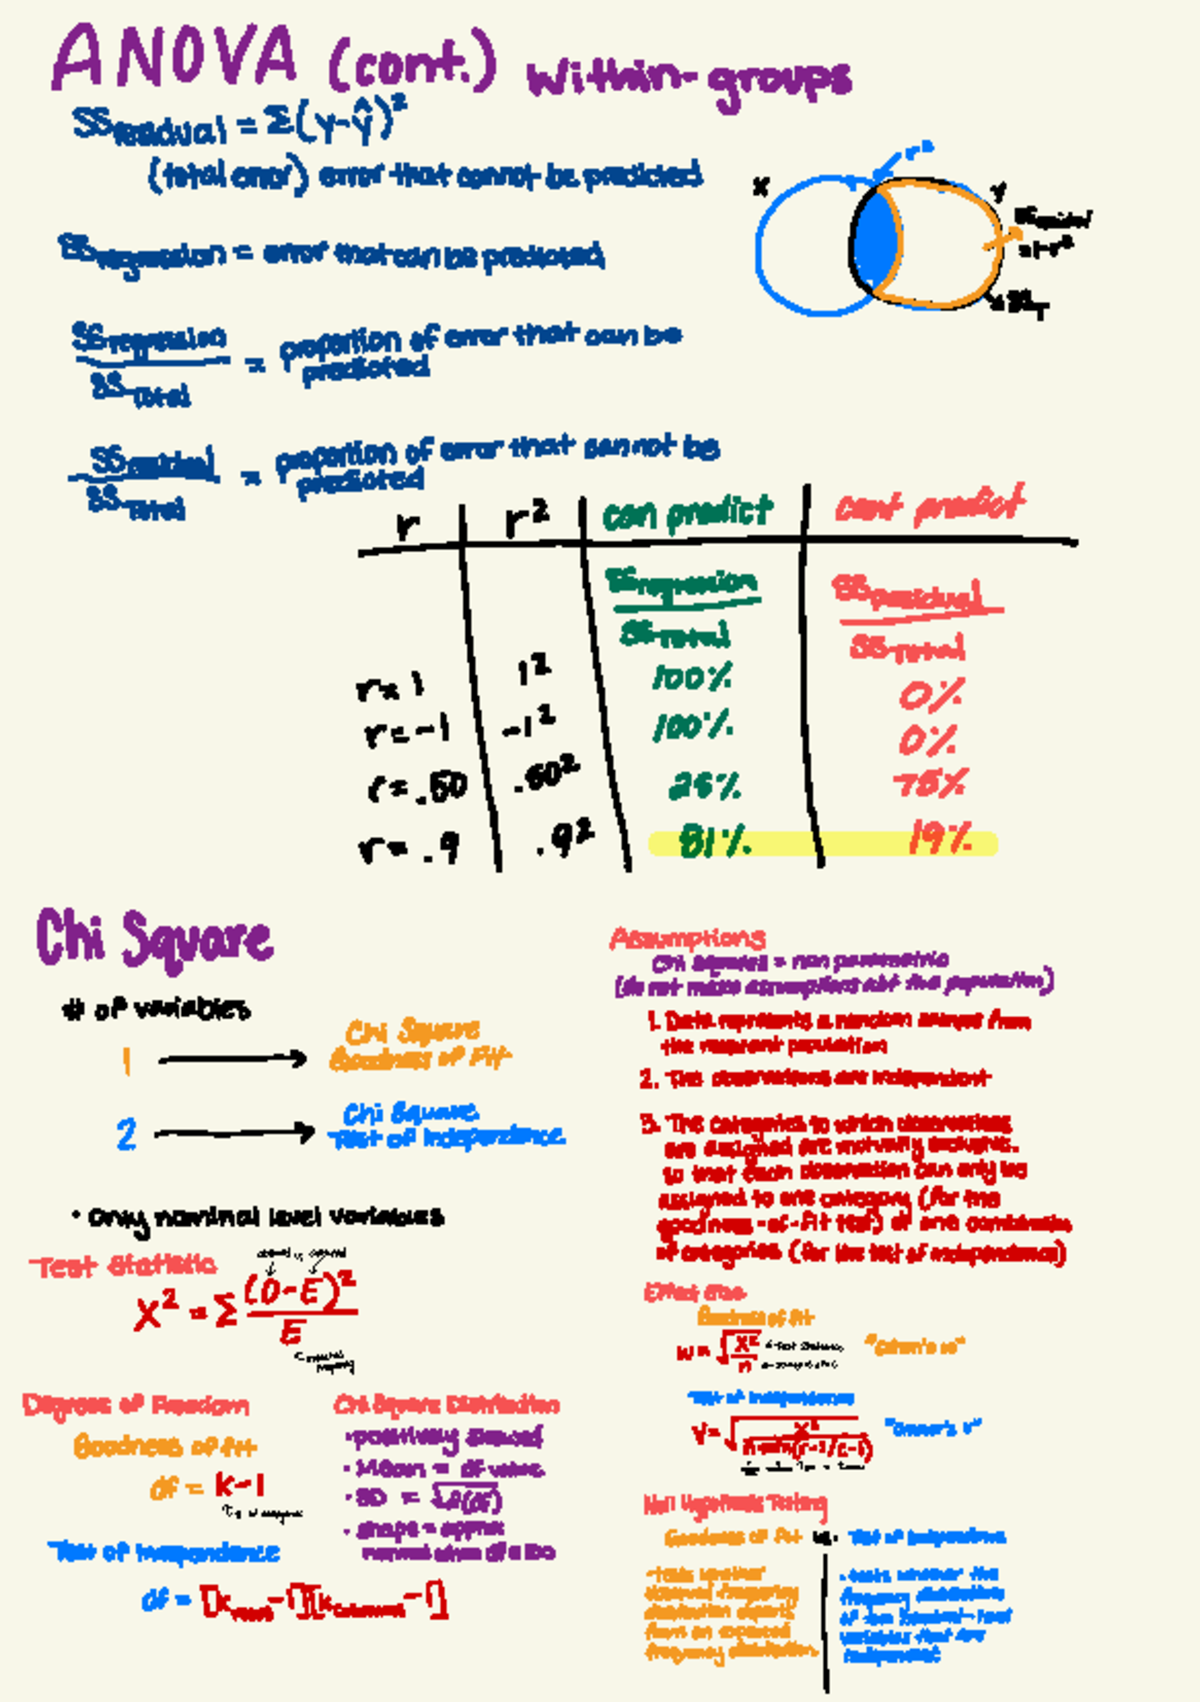 ANOVA (cont.) Within-groups
SSresidual = Σ(y-ŷ)²
(total error) error that cannot be predicted
r²
x
y
SSresidual
=1-r²
SST
SSregression = error that can be predicted
SSregression
SSTotal
= proportion of error that can be
predicted
SSresidual
SSTotal
= proportion of error that cannot be
predicted
r r² can predict cant predict
SSregression SSresidual
SSTotal SSTotal
r=1 1² 100% 0%
r=-1 -1² 100% 0%
r=.50 .50² 25% 75%
r=.9 .9² 81% 19%
Chi Square
# of variables
1 → Chi Square
Goodness of Fit
2 → Chi Square
Test of Independence
• only nominal level variables
Test Statistic
X² = Σ (O-E)²
E
Degrees of Freedom
Goodness of Fit
df = k-1
Test of Independence
df = [krows-1][kcolumns-1]
Chi Square Distribution
•positively skewed
• Mean = df value
• SD = √2(df)
• shape = approx
normal when df ≥
Assumptions
Chi Squares = non parametric
(do not make assumptions abt the population)
1. Data represents a random sample from
the relevant population
2. The observations are independent
3. The categories to which observations
are assigned are mutually exclusive,
so that each observation can only be
assigned to one category (for the
goodness-of-fit test) or one combination
of categories (for the test of independence)
Effect Size
Goodness of Fit
w = √X²
n
"Cohen's w"
Test of Independence
V = √X²
n·min(r-1/c-1)
"Cramer's V"
Null Hypothesis Testing
Goodness of Fit vs. Test of Independence
•tests whether
observed frequency
distribution departs
from an expected
frequency distribution
• tests whether the
frequency distributions
of two nominal-level
variables that are
independent